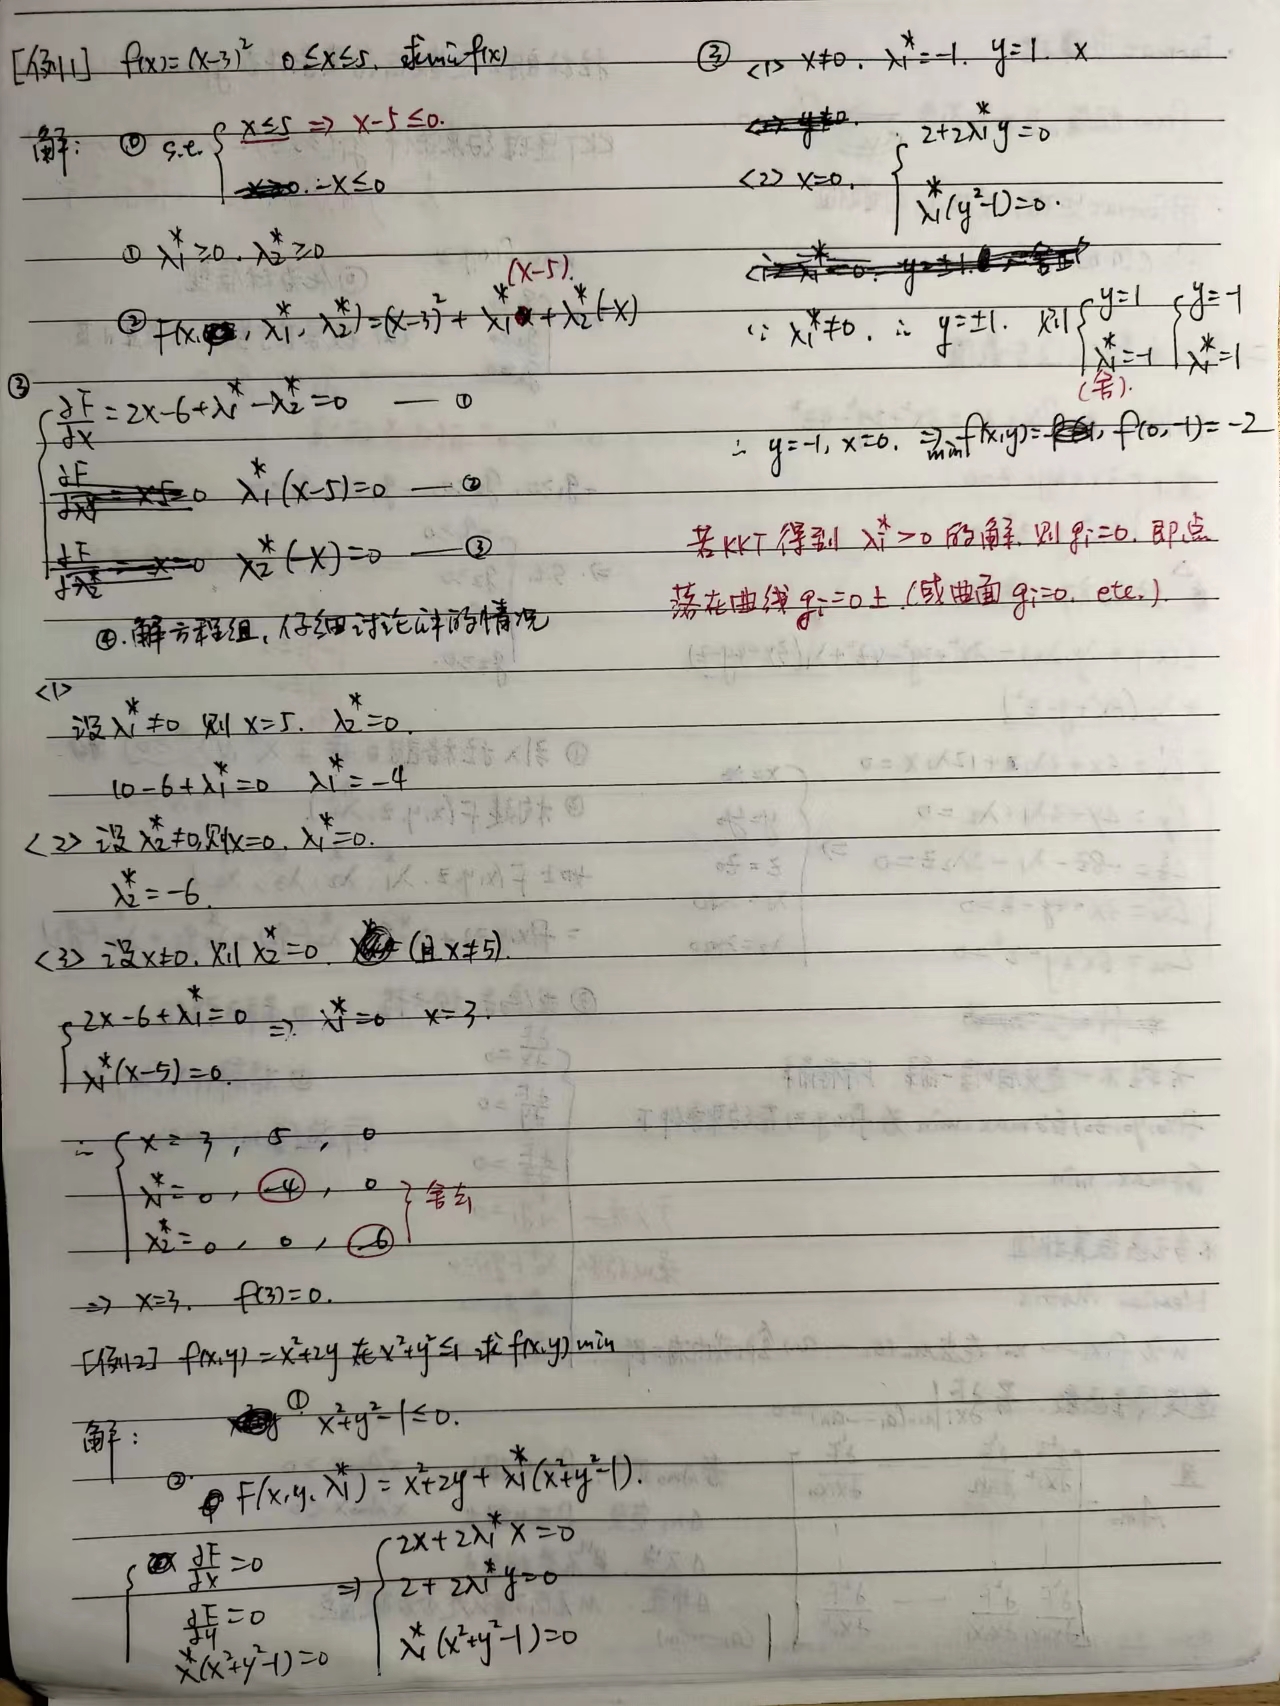 [例1] f(x)=(x-3)² 0≤x≤5, 求min f(x)
解: ⓪ s.t. { x≤5 ⇒ x-5≤0.
-x≤0
① λ₁*≥0. λ₂*≥0
② F(x, λ₁*, λ₂*)=(x-3)²+λ₁*(x-5)+λ₂*(-x)
③
{ ∂F/∂x=2x-6+λ₁*-λ₂*=0 — ①
λ₁*(x-5)=0 — ②
λ₂*(-x)=0 — ③
④.解方程组,仔细讨论的情况
<1>
设λ₁*≠0 则 x=5. λ₂*=0.
10-6+λ₁*=0 λ₁*=-4
<2> 设λ₂*≠0,则x=0. λ₁*=0.
λ₂*=-6.
<3> 设x≠0. 则 λ₂*=0. (且x≠5).
{ 2x-6+λ₁*=0 ⇒ λ₁*=0 x=3.
λ₁*(x-5)=0.
∴ { x=3, 5, 0
λ₁*=0, -4, 0 } 舍去
λ₂*=0, 0, -6
⇒ x=3. f(3)=0.
[例2] f(x,y)=x²+2y 在x²+y²≤1 求f(x,y) min
解: ① x²+y²-1≤0.
②. F(x,y,λ₁*)=x²+2y+λ₁*(x²+y²-1).
{ ∂F/∂x=0 ⇒ { 2x+2λ₁*x=0
∂F/∂y=0 2+2λ₁*y=0
λ*(x²+y²-1)=0 λ₁*(x²+y²-1)=0
③ <1> x≠0. λ₁*=-1. y=1. x
<2> x=0. { 2+2λ₁*y=0
λ₁*(y²-1)=0.
∵ λ₁*≠0. ∴ y=±1. 则 { y=1 { y=-1
λ₁*=-1 λ₁*=1
(舍).
∴ y=-1, x=0. ⇒ min f(x,y)= f(0,-1)=-2
若KKT得到 λᵢ*>0的解,则gᵢ=0. 即点
落在曲线gᵢ=0上.(或曲面gᵢ=0. etc.).